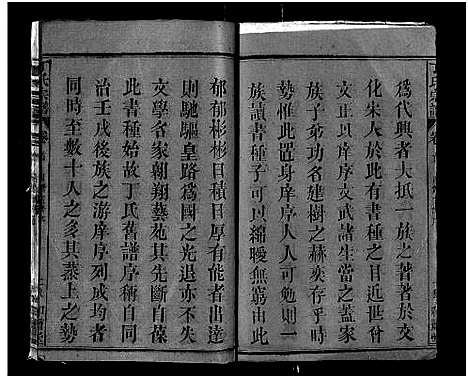 為代興者大抵一族之著著於文
化宋人於此有書種之說近世科
目以庠序文武諸生當之蓋家
族子弟功名建樹之赫奕存乎時
勢惟此置身庠序人可勉則一
族讀書種子可以綿曖無窮由此
郁郁彬彬日積日厚有能者出達
則馳驅皇路為國之光退亦不失
文學名家翱翔藝苑其先斷自葆
此書種始故丁氏舊譜序稱自同
治壬戌後族之游庠序列成均者
同時至數十人之多其蒸上之勢